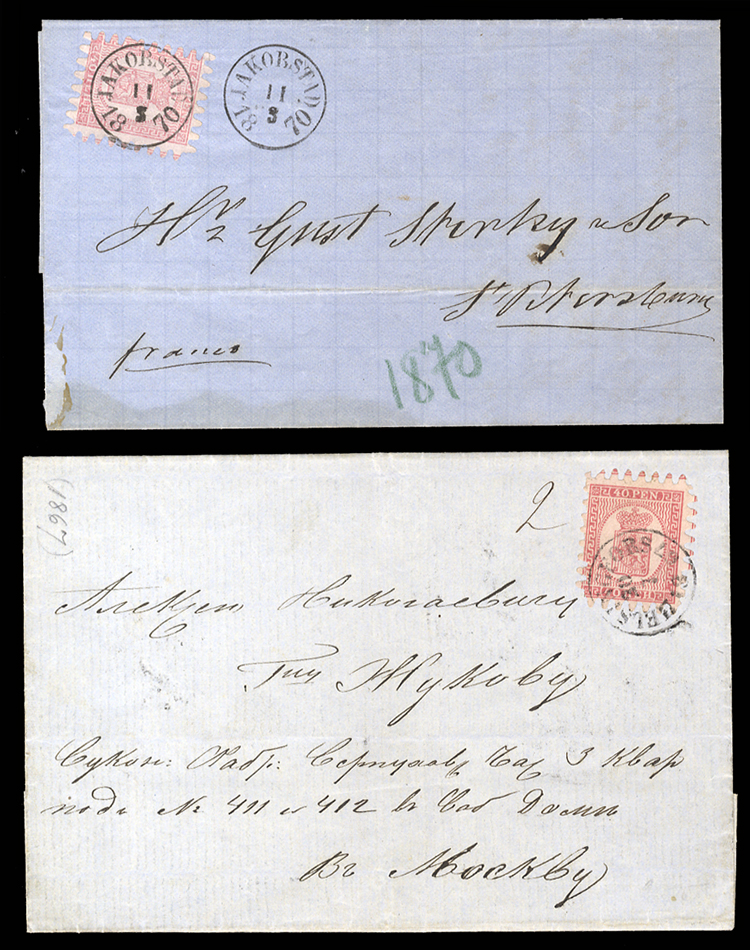 JAKOBSTAD
11
3
18 70
JAKOBSTAD
11
3
18 70
Hrr Gust Sterky & Son
St Petersburg
franco
1870
(1867)
2
40 PEN.
Николаевичу
Гну Жукову
Сукон: Фабр: Серпуховс Час 3 Квар
подъ № 411 и 412 въ Соб Домѣ
Въ Москву